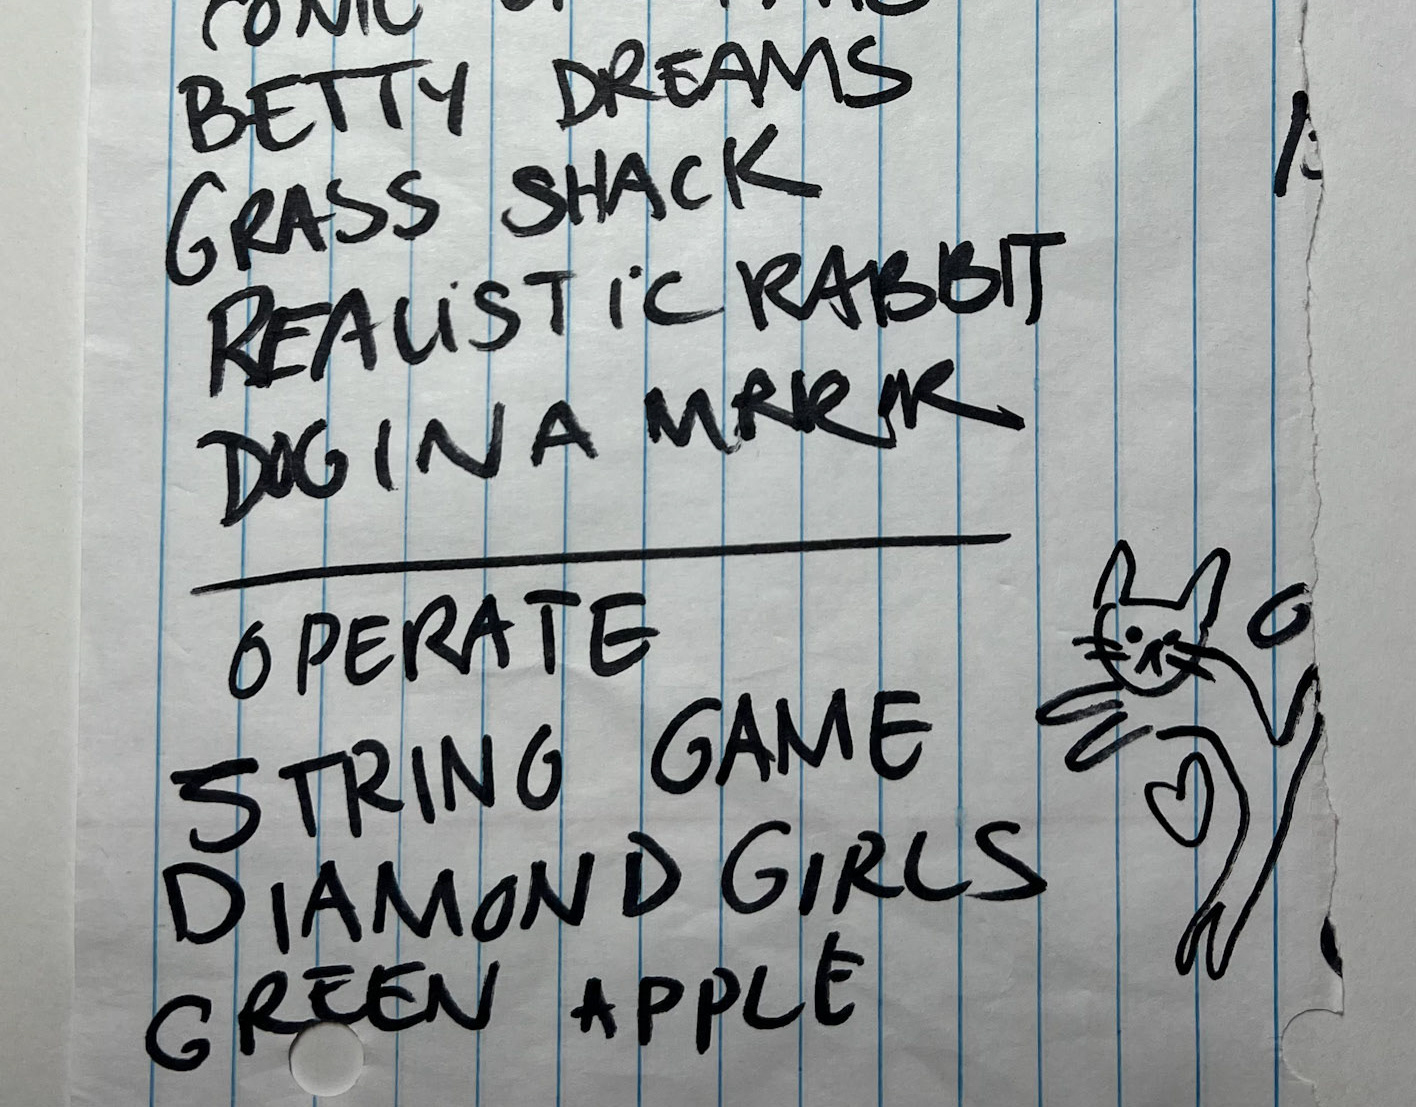 BETTY DREAMS
GRASS SHACK
REALiSTiC RABBIT
DOG IN A MRRRMR
OPERATE
STRING GAME
DIAMOND GIRLS
GREEN APPLE